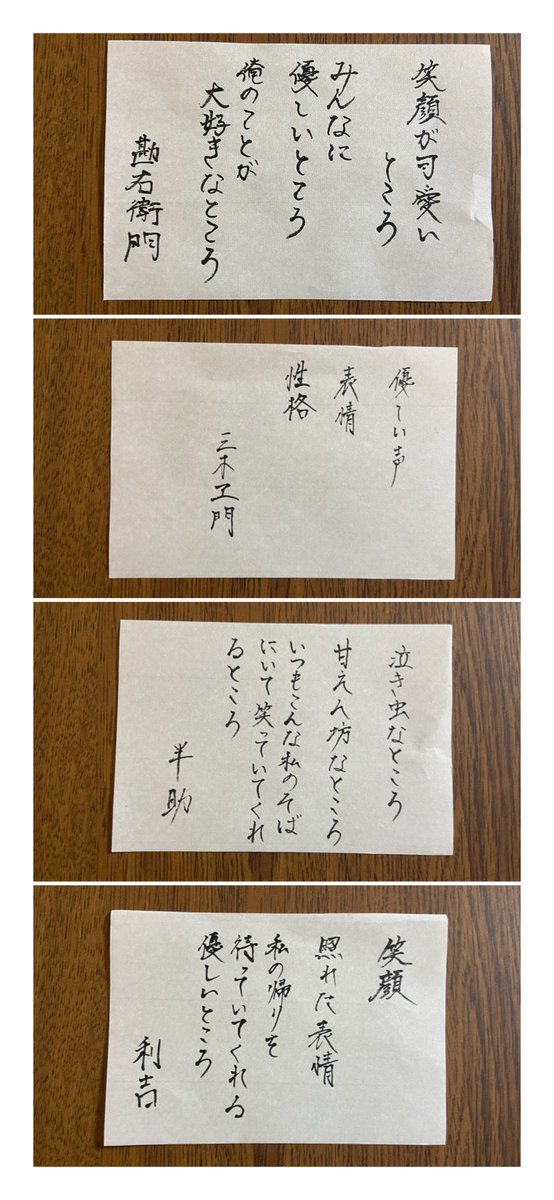 笑顔が可愛い
ところ
みんなに
優しいところ
俺のことが
大好きなところ
勘右衛門
優しい声
表情
性格
三木ヱ門
泣き虫なところ
甘えん坊なところ
いつもこんな私のそば
にいて笑っていてくれ
るところ
半助
笑顔
照れた表情
私の帰りを
待っていてくれる
優しいところ
利吉